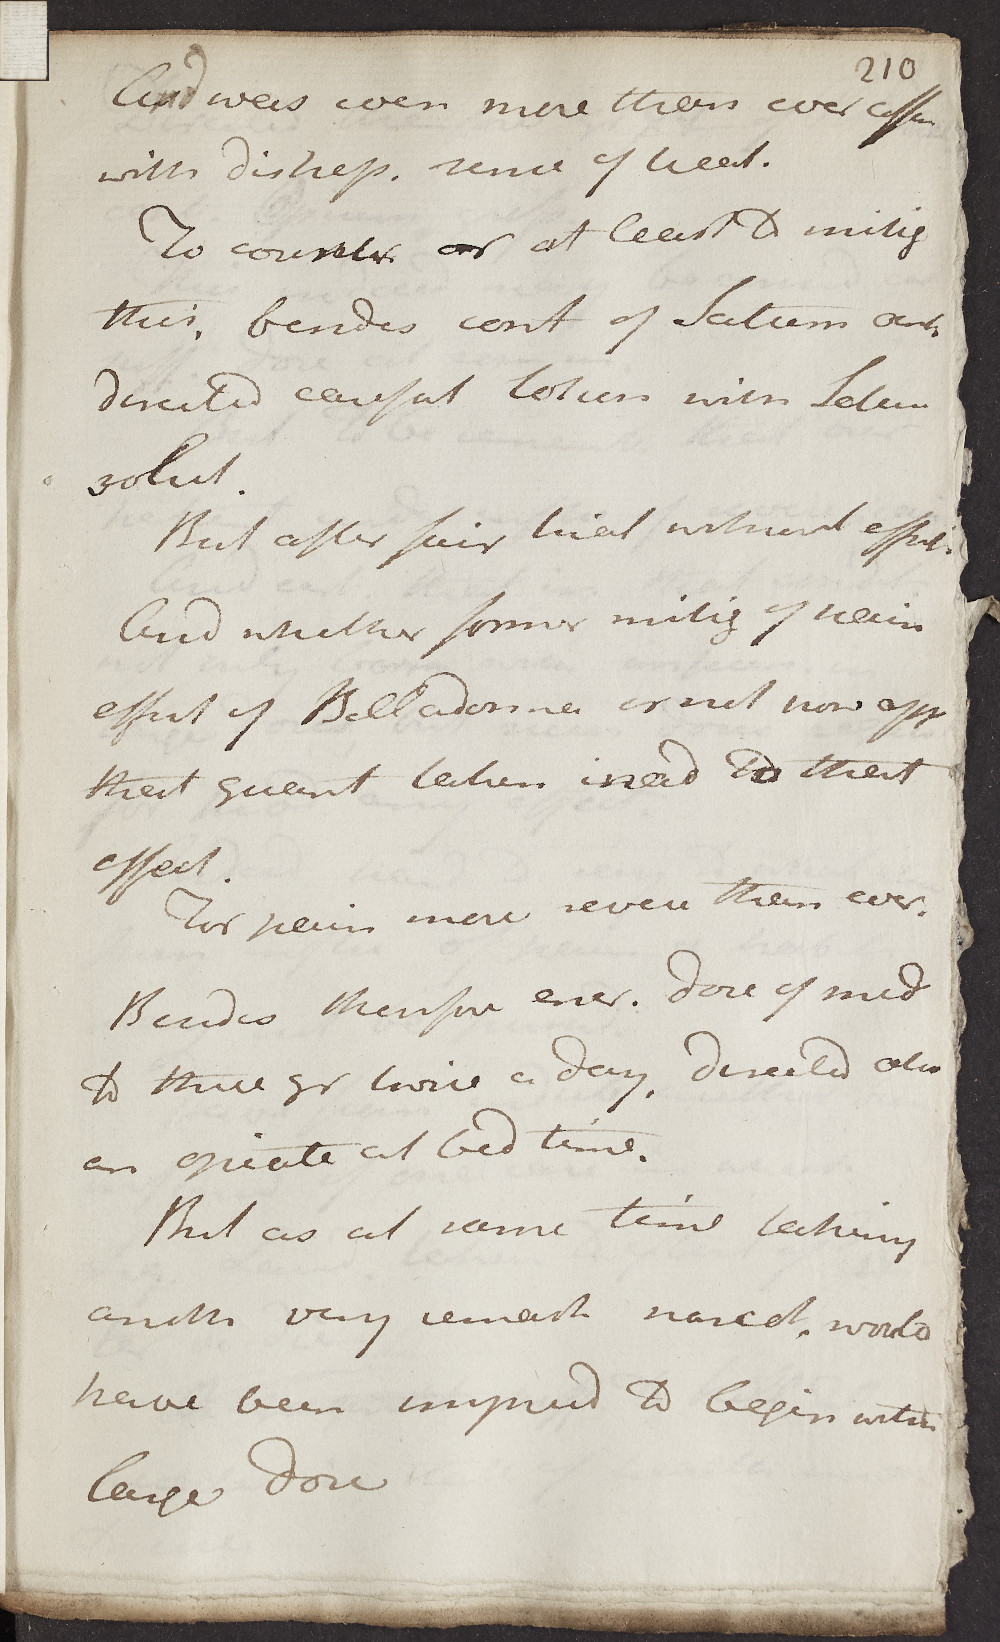 210
And was even more than ever affec
with distress. sense of heat.
To counter or at least to mitig
this, besides cont of Saturn
directed careful lotion with Saturn
solut.
But after fair trial without effect.
And whether former mitig of pain
effect of Belladonna or not now app
that quant taken inad to that
effect.
For pain more severe than ever.
Besides therefore encr. dose of med
to three gr twice a day, directed also
an opiate at bed time.
But as at same time taking
anoth very remark narcot. would
have been imprud to begin with
large dose